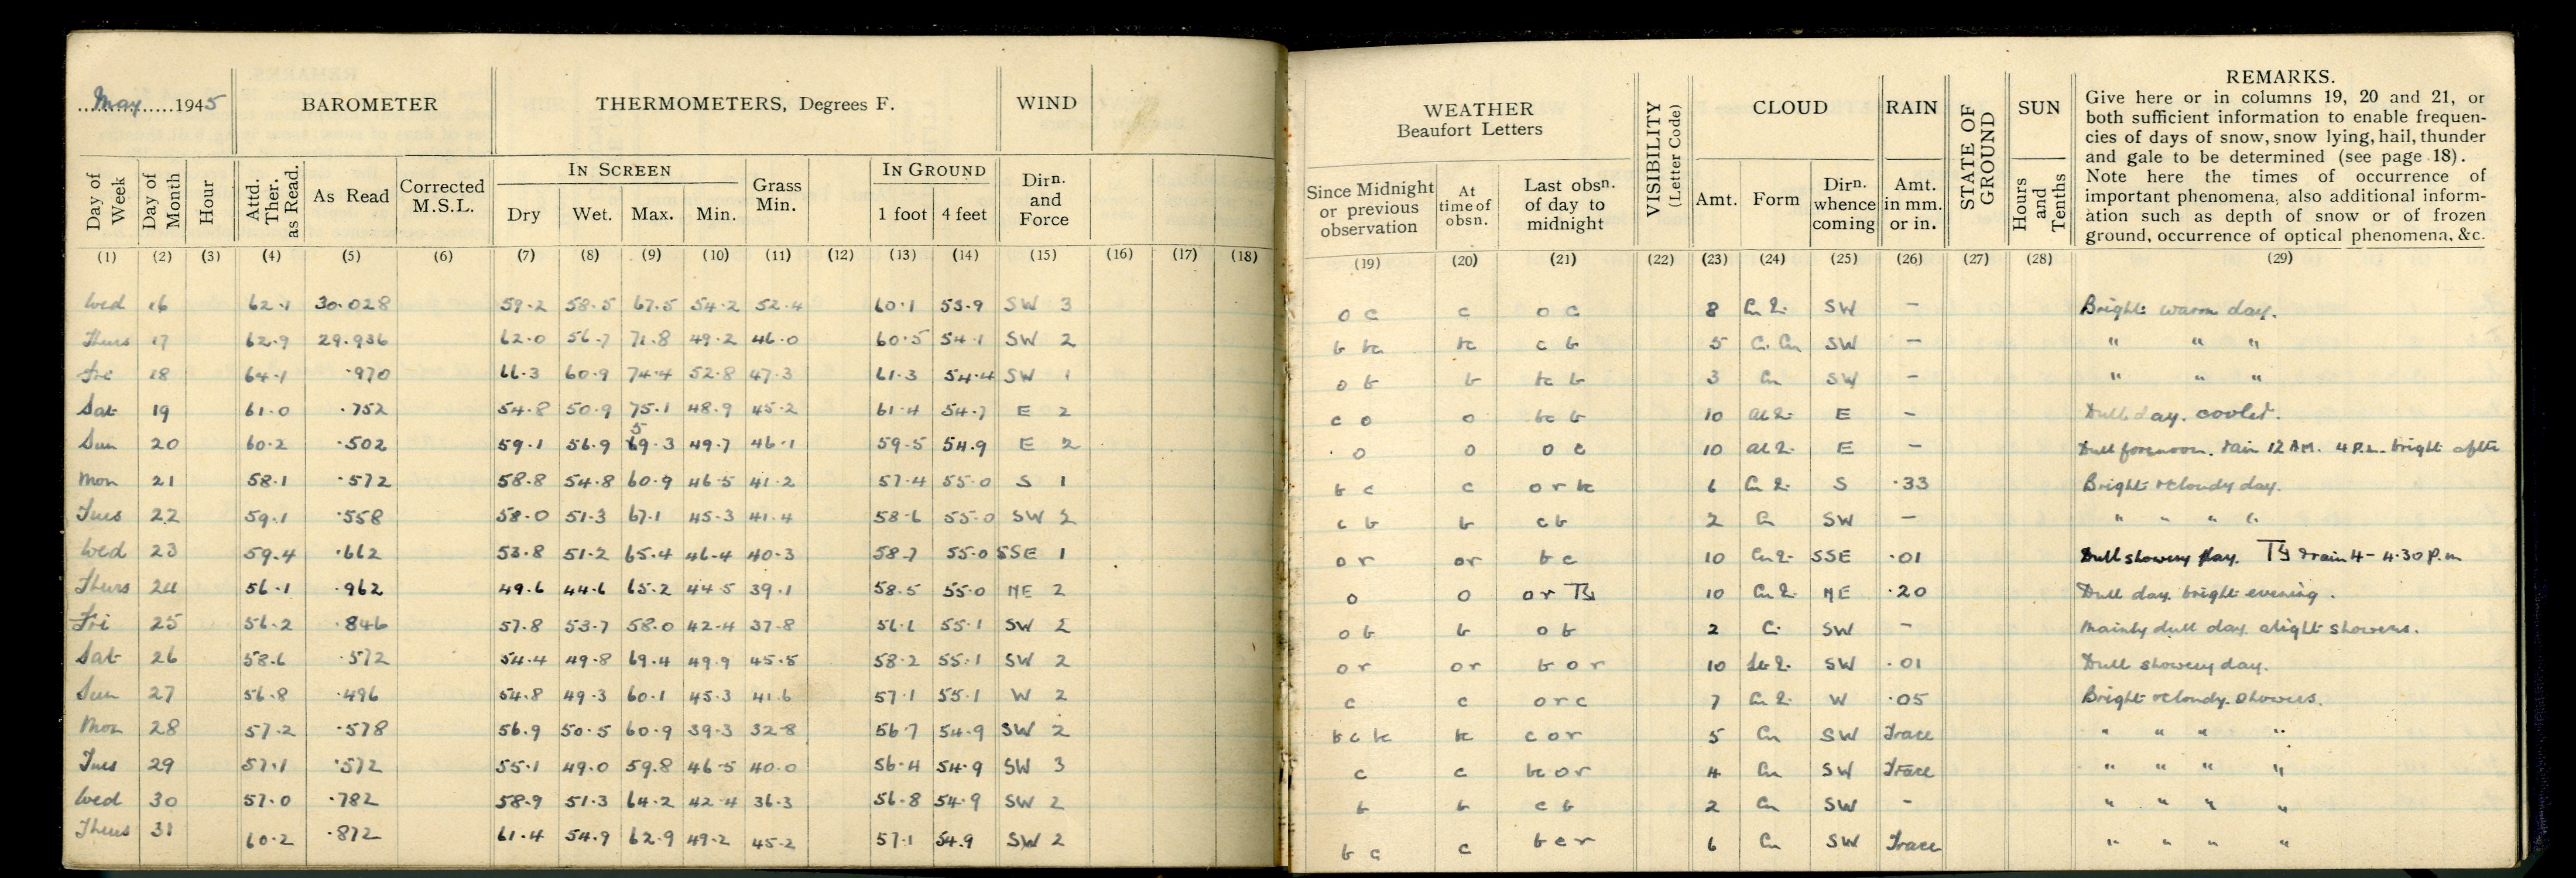 May 1945 BAROMETER THERMOMETERS, Degrees F. WIND
Day of Week Day of Month Hour Attd. Ther. as Read. As Read Corrected M.S.L. IN SCREEN Dry Wet. Max. Min. Grass Min. IN GROUND 1 foot 4 feet Dirn. and Force
(1) (2) (3) (4) (5) (6) (7) (8) (9) (10) (11) (12) (13) (14) (15) (16) (17) (18)
Wed 16 62.1 30.028 59.2 58.5 67.5 54.2 52.4 60.1 53.9 SW 3
Thurs 17 62.9 29.936 62.0 56.7 71.8 49.2 46.0 60.5 54.1 SW 2
Fri 18 64.1 .970 66.3 60.9 74.4 52.8 47.3 61.3 54.4 SW 1
Sat 19 61.0 .752 54.8 50.9 75.1 48.9 45.2 61.4 54.7 E 2
Sun 20 60.2 .502 59.1 56.9 59.3 49.7 46.1 59.5 54.9 E 2
Mon 21 58.1 .572 58.8 54.8 60.9 46.5 41.2 57.4 55.0 S 1
Tues 22 59.1 .558 58.0 51.3 67.1 45.3 41.4 58.6 55.0 SW 2
Wed 23 59.4 .662 53.8 51.2 65.4 46.4 40.3 58.7 55.0 SSE 1
Thurs 24 56.1 .962 49.6 44.6 65.2 44.5 39.1 58.5 55.0 NE 2
Fri 25 56.2 .846 57.8 53.7 58.0 42.4 37.8 56.6 55.1 SW 2
Sat 26 58.6 .572 54.4 49.8 69.4 49.9 45.5 58.2 55.1 SW 2
Sun 27 56.8 .496 54.8 49.3 60.1 45.3 41.6 57.1 55.1 W 2
Mon 28 57.2 .578 56.9 50.5 60.9 39.3 32.8 56.7 54.9 SW 2
Tues 29 57.1 .572 55.1 49.0 59.8 46.5 40.0 56.4 54.9 SW 3
Wed 30 57.0 .782 58.9 51.3 64.2 42.4 36.3 56.8 54.9 SW 2
Thurs 31 60.2 .872 61.4 54.9 62.9 49.2 45.2 57.1 54.9 SW 2
WEATHER Beaufort Letters VISIBILITY (Letter Code) CLOUD RAIN STATE OF GROUND SUN REMARKS.
Since Midnight or previous observation At time of obsn. Last obsn. of day to midnight Amt. Form Dirn. whence coming Amt. in mm. or in. Hours and Tenths
Give here or in columns 19, 20 and 21, or
both sufficient information to enable frequen-
cies of days of snow, snow lying, hail, thunder
and gale to be determined (see page 18).
Note here the times of occurrence of
important phenomena, also additional inform-
ation such as depth of snow or of frozen
ground, occurrence of optical phenomena, &c.
(19) (20) (21) (22) (23) (24) (25) (26) (27) (28) (29)
o c c o c 8 SW - Bright warm day.
b bc bc c b 5 Ci Cu SW - " " "
o b b bc b 3 Cu SW - " " "
c o o bc b 10 E - Dull day. cooler.
o o o c 10 E - Dull forenoon. rain 12 AM. 4 P.M. bright after
b c c o r bc 6 S .33 Bright & cloudy day.
c b b c b 2 SW - " " " "
o r or b c 10 SSE .01 Dull showery day. & rain 4 - 4.30 P.m
o o o r 10 NE .20 Dull day. bright evening.
o b b o b 2 Ci SW - Mainly dull day. slight showers.
o r or b o r 10 SW .01 Dull showery day.
c c o r c 7 W .05 Bright & cloudy. showers.
b c bc bc c o r 5 Cu SW Trace " " " "
c c bc o r 4 Cu SW Trace " " " "
b b c b 2 Cu SW - " " " "
b c c b c r 6 Cu SW Trace " " " "